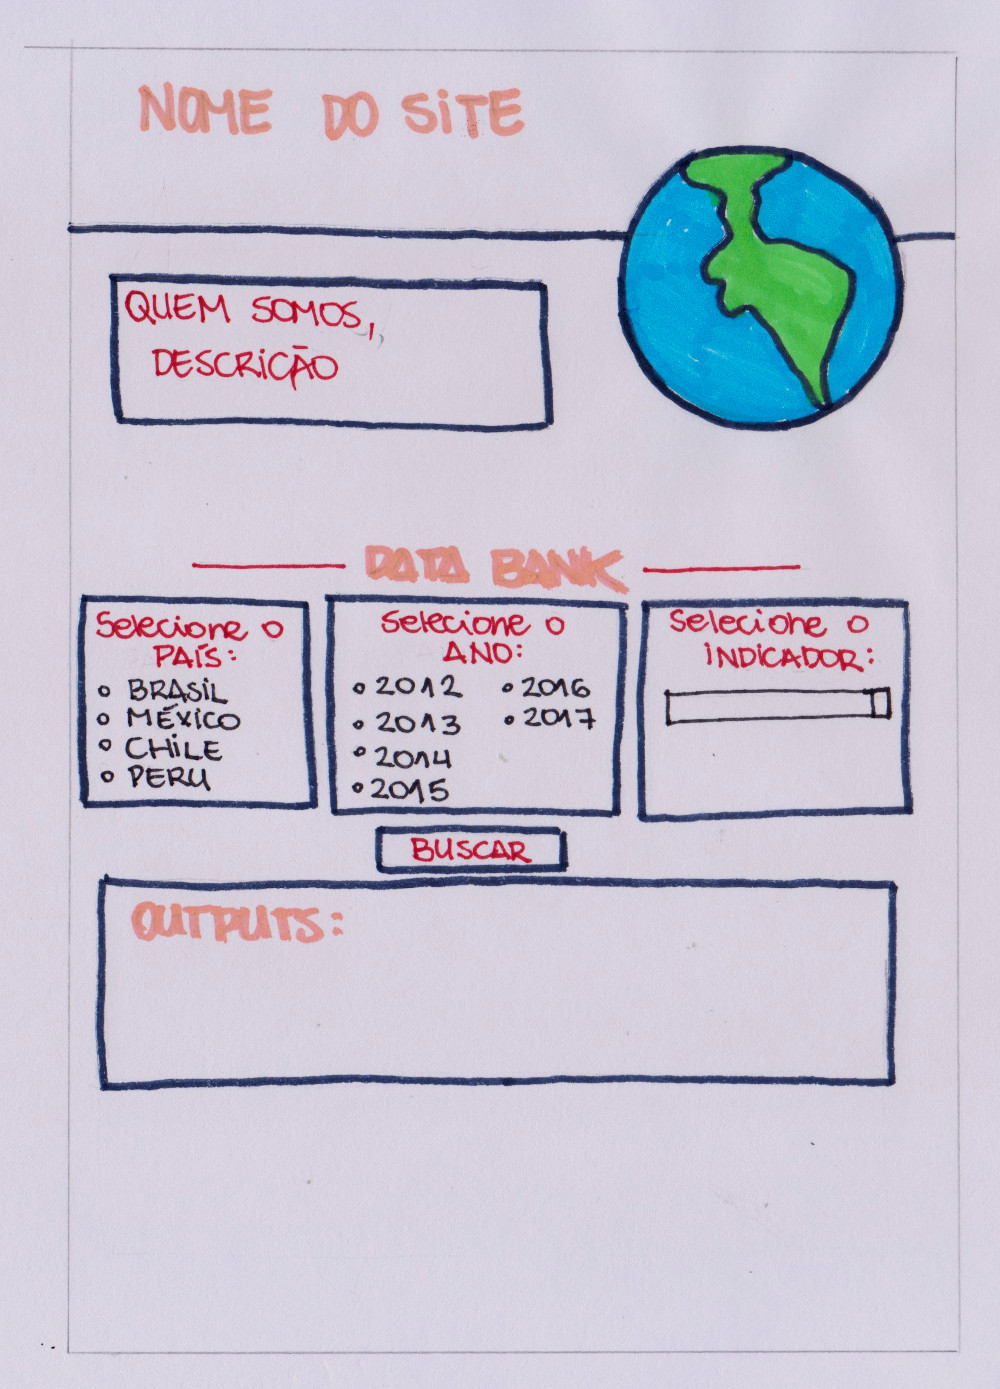 NOME DO SITE
QUEM SOMOS,
DESCRIÇÃO
DATA BANK
Selecione o
PAÍS:
BRASIL
MÉXICO
CHILE
PERU
Selecione o
ANO:
2012
2013
2014
2015
2016
2017
Selecione o
INDICADOR:
BUSCAR
OUTPUTS: